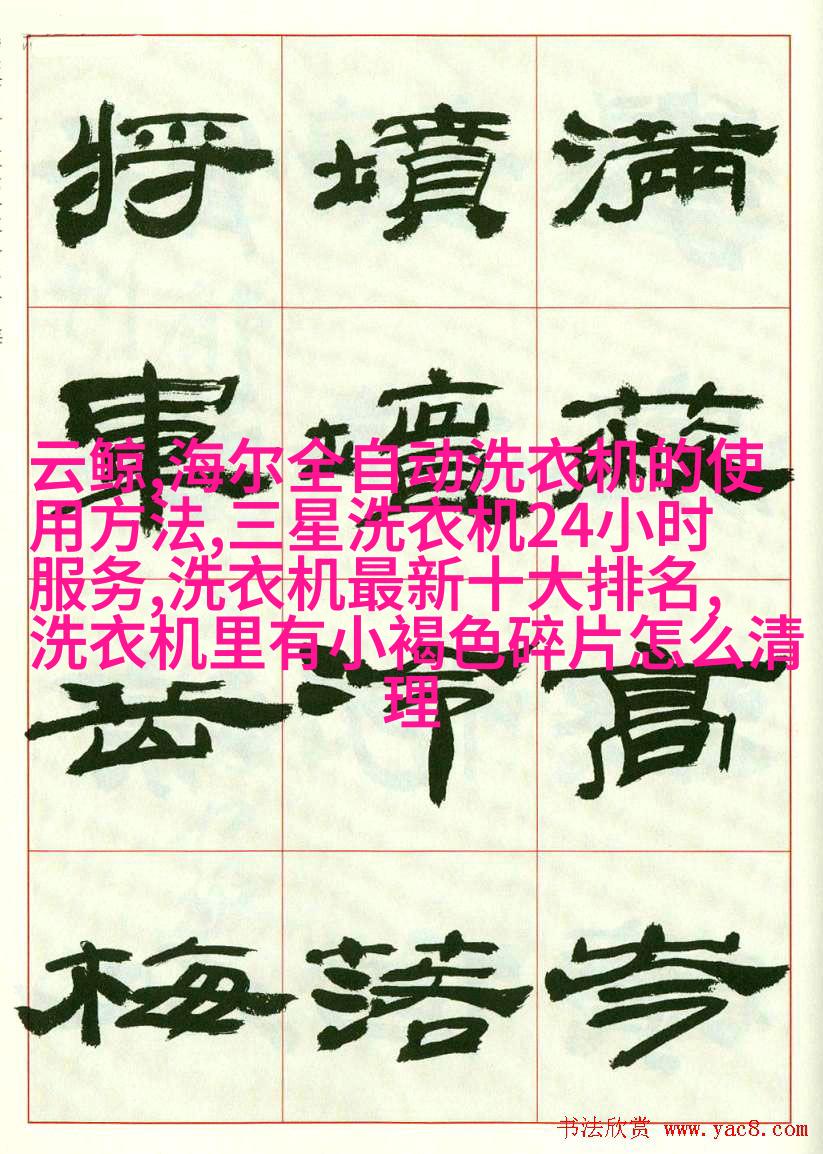 滿高岑
墳壇冷落
將軍岳梅
云鲸,海尔全自动洗衣机的使
用方法,三星洗衣机24小时
服务,洗衣机最新十大排名,
洗衣机里有小褐色碎片怎么清
理
书法欣赏 www.yac8.com